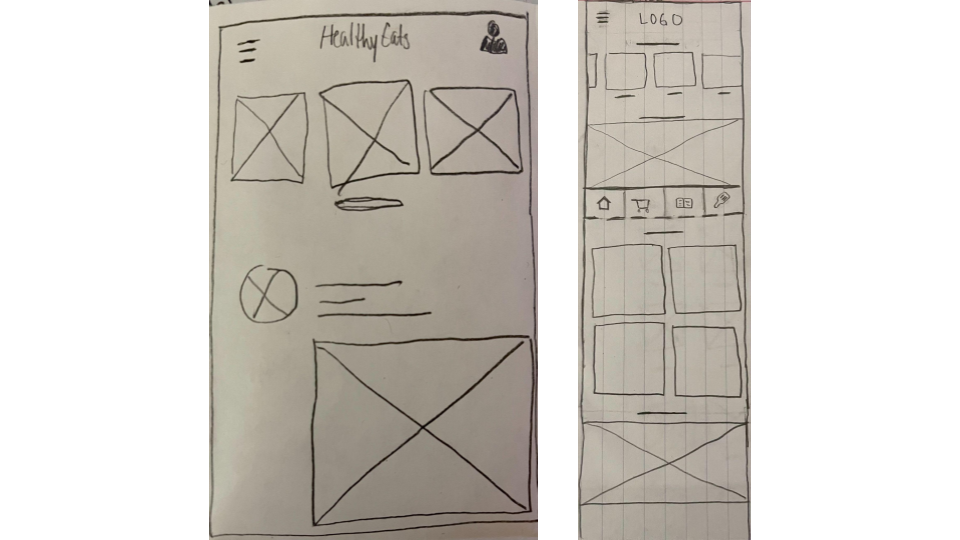 Healthy Eats
LOGO